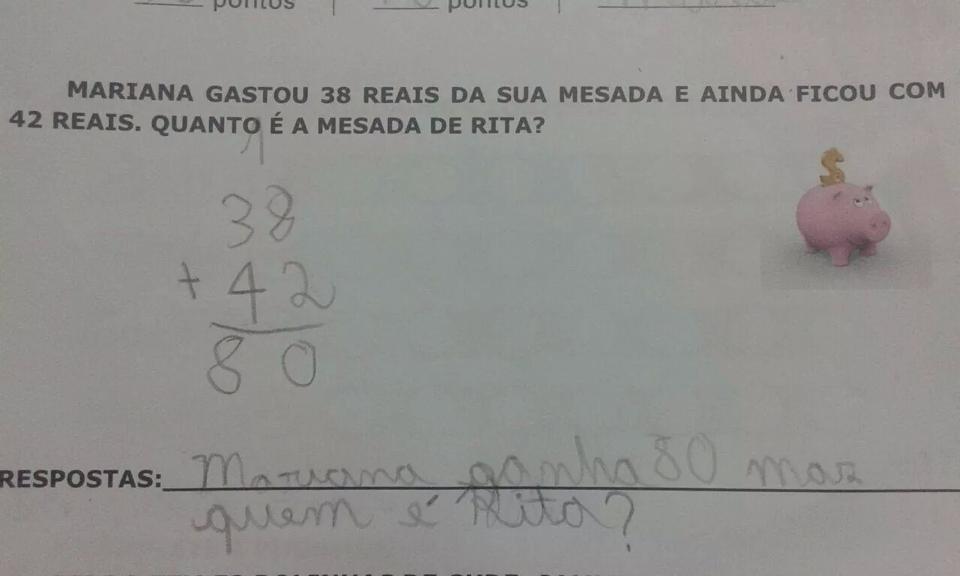 pontos pontos
MARIANA GASTOU 38 REAIS DA SUA MESADA E AINDA FICOU COM
42 REAIS. QUANTO É A MESADA DE RITA?
1
38
+ 42
80
RESPOSTAS: Mariana ganha 80 mas
quem é Rita?